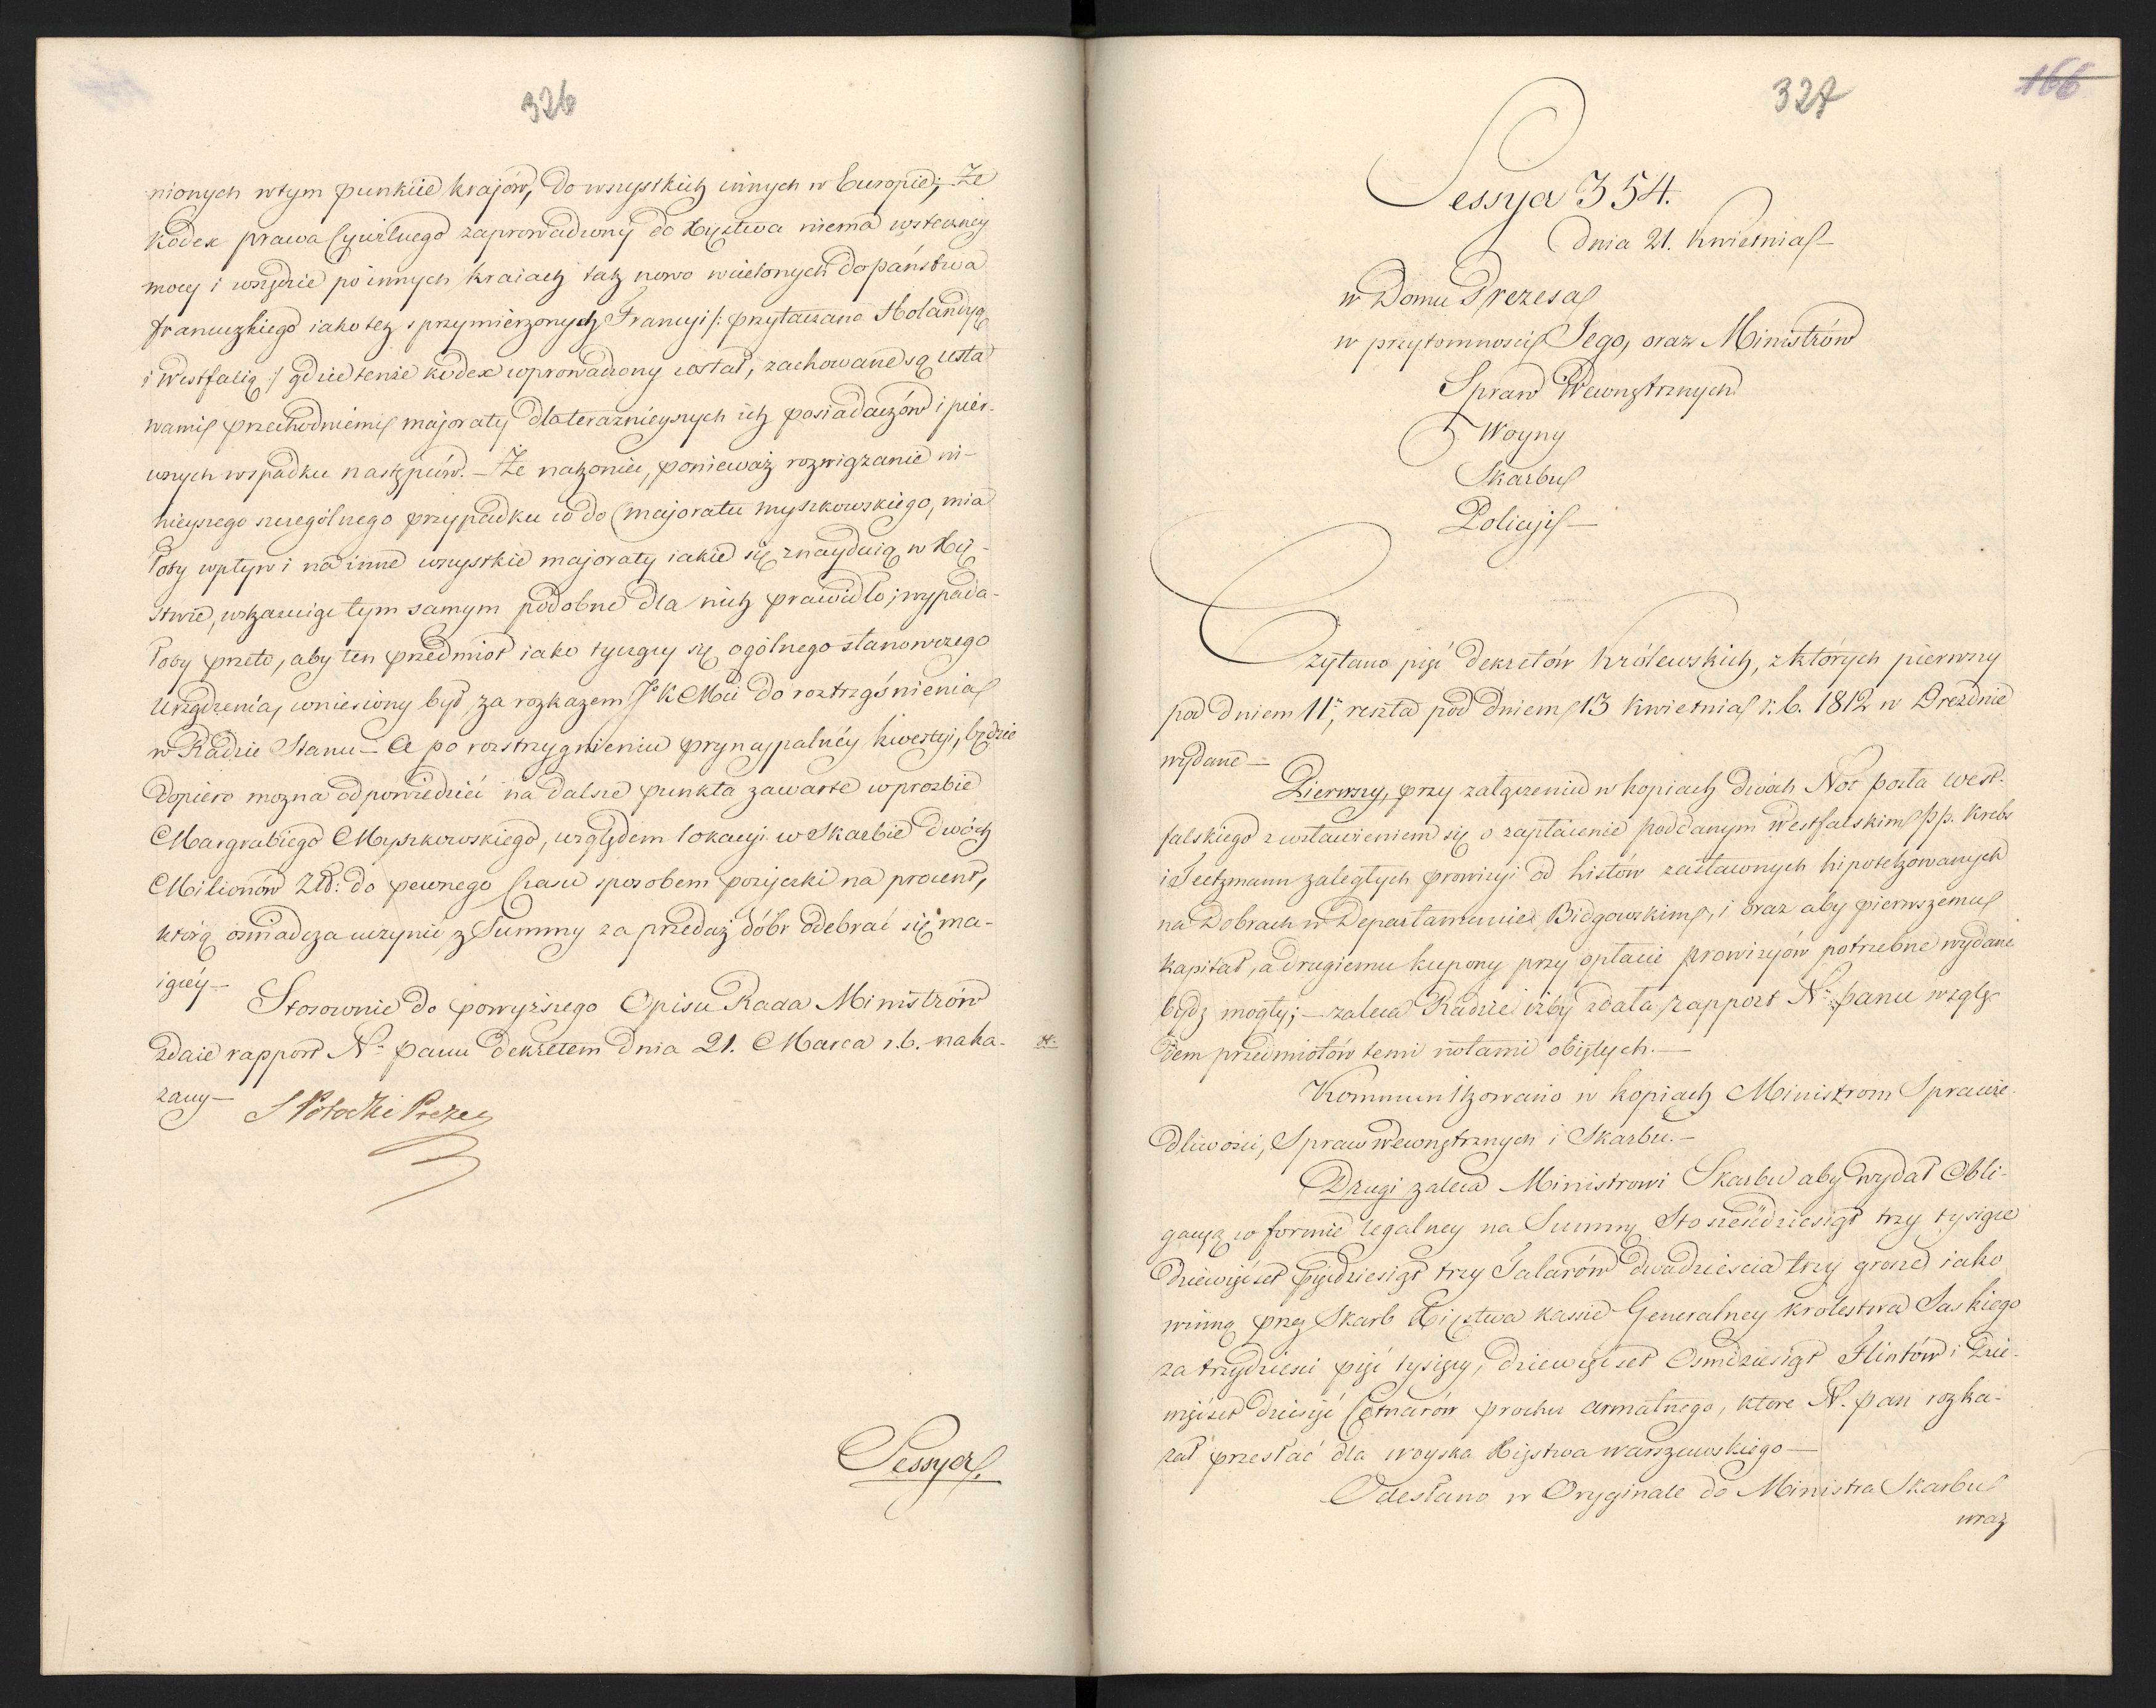 326
nionych w tym punkcie krajów, do wszystkich innych w Europie; że
Kodex prawa Cywilnego zaprowadzony do Xięstwa niema wsteczney
mocy i wszędzie po innych kraiach tak nowo wcielonych do państwa
francuzkiego iako też sprzymierzonych Francyi /: przytaczano Holandyą
i Westfalią :/ gdzie tenże kodex wprowadzony został, zachowane są usta
wami przechodniemi majoraty dla teraznieyszych ich posiadaczów i pier-
wszych w spadku następców. — Że nakoniec, ponieważ rozwiązanie ni-
nieyszego szczególnego przypadku co do majoratu myszkowskiego, mia
łoby wpływ i na inne wszystkie majoraty iakie się znayduią w Xię-
stwie, wskazuiąc tym samym podobne dla nich prawidło; wypada-
łoby przeto, aby ten przedmiot iako tyczący się ogólnego stanowczego
Urządzenia, wniesiony był za rozkazem J. K Mci do roztrząśnienia
w Radzie Stanu — A po rozstrzygnieniu prynajpalnéy kwestyi, będzie
dopiero mozna odpowiedzieć na dalsze punkta zawarte w prozbie
Margrabiego Myszkowskiego, względem lokacyi w Skarbie dwóch
Milionów Złł: do pewnego czasu sposobem pożyczki na procent,
którą oświadcza uczynić z Summy za przedaż dóbr odebrać się ma-
iącéy —
Stosownie do powyższego Opisu Rada Ministrów
zdaie rapport N. panu dekretem dnia 21. Marca r. b. naka-
zany —
S Potocki Prezes
Sessya
327
166
Sessya 354.
dnia 21. Kwietnia
w Domu Prezesa
w przytomnosci Jego, oraz Ministrów
Spraw Wewnętrznych
Woyny
Skarbu
Policyi —
Czytano pięć dekretów Królewskich, z których pierwszy
pod dniem 11., reszta pod dniem 13 Kwietnia r. b. 1812 w Dreźnie
wydane —
Pierwszy, przy załączeniu w kopiach dwóch Not posła west-
falskiego z wstawieniem się o zapłacenie poddanym Westfalskim pp. Krebs
i Teetzmann zaległych prowizyi od listów zastawnych hipotekowanych
na Dobrach w Departamencie Bidgowskim, i oraz aby pierwszemu
kapitał, a drugiemu kupony przy opłacie prowizyów potrzebne wydane
bydź mogły; — zaleca Radzie iżby zdała rapport N. panu wzglę
dem przedmiotów temi notami obiętych. —
Kommunikowano w kopiach Ministrom Sprawie-
dliwości, Spraw Wewnętrznych i Skarbu. —
Drugi zaleca Ministrowi Skarbu aby wydał Obli-
gacyą w formie legalney na Summę Sto sześćdziesiąt trzy tysiące
dziewięćset pięćdziesiąt trzy Talarów dwadzieścia trzy grosze iako
winną przez Skarb Xięstwa kassie Generalney Krolestwa Saskiego
za trzydzieści pięć tysięcy, dziewięćset Osmdziesiąt Flintów i dzie-
więćset dziesięć Cetnarów prochu armatnego, które N. pan rozka-
zał przesłać dla woyska Xięstwa warszawskiego —
Odesłano w Oryginale do Ministra Skarbu
wraz